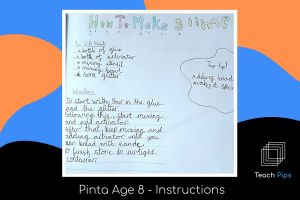 How To Make Slime
You Will Need
a bottle of glue
a bottle of activator
a mixing utensil
a mixing bowl
some glitter
Top tip!
Adding beads
makes it
Instructions
To start with, Pour in the glue
and the glitter.
Following this, start mixing
and add activator.
After that, keep mixing and
adding activator until you
can knead with hands.
To finish store in airtight
container.
Teach Pips
Pinta Age 8 - Instructions